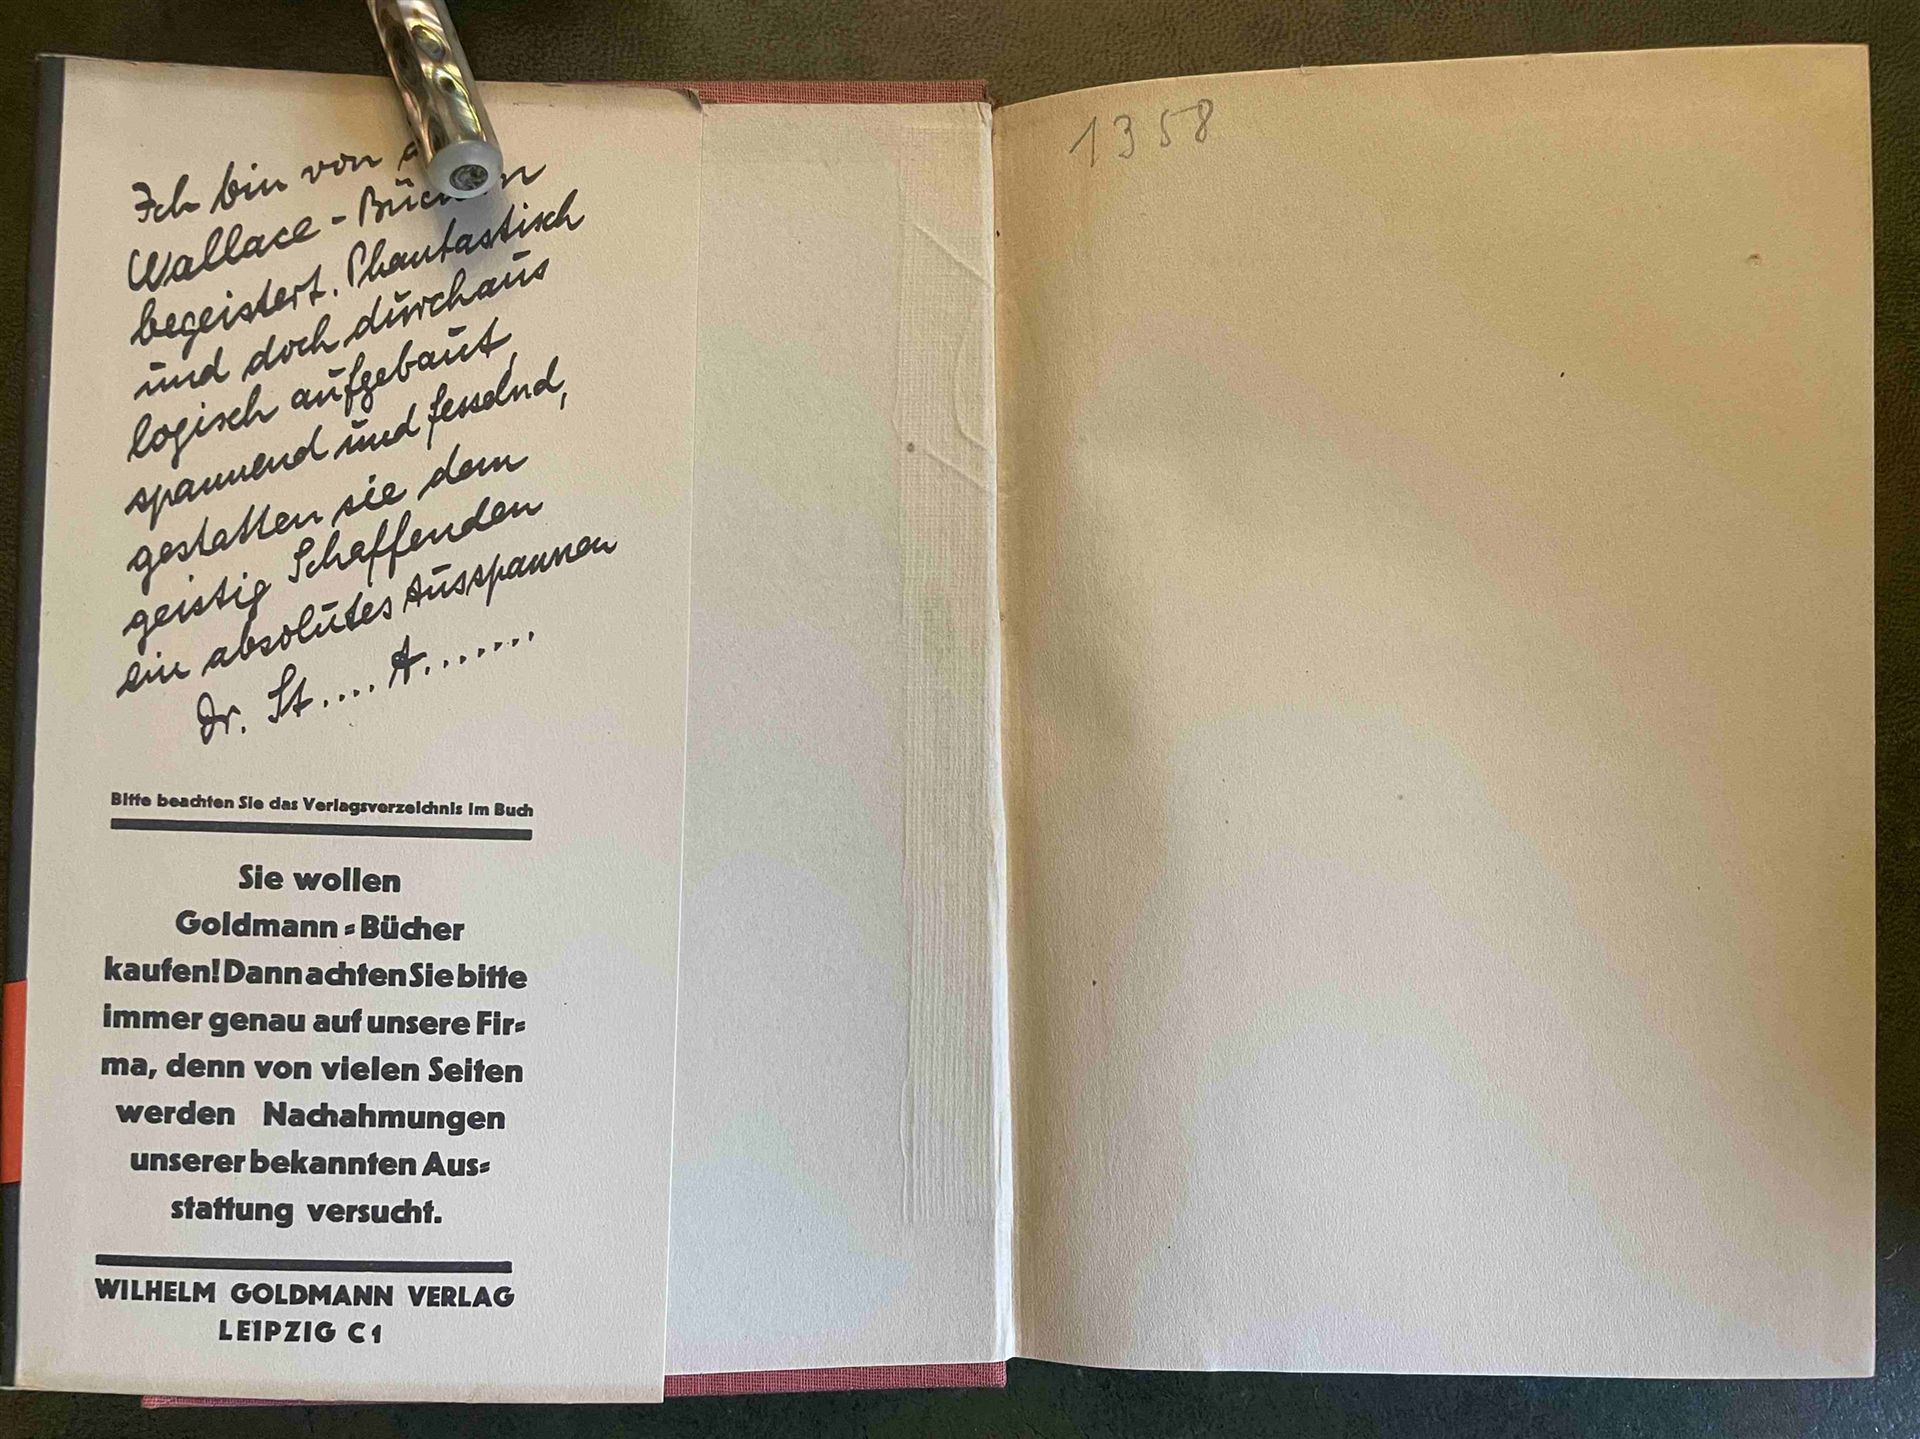 Ich bin von
Wallace-Büchern
begeistert. Phantastisch
und doch durchaus
logisch aufgebaut,
spannend und fesselnd,
gestatten sie dem
geistig Schaffenden
ein absolutes Ausspannen
Dr. St.... A.......
Bitte beachten Sie das Verlagsverzeichnis im Buch
Sie wollen
Goldmann=Bücher
kaufen! Dann achten Sie bitte
immer genau auf unsere Fir=
ma, denn von vielen Seiten
werden Nachahmungen
unserer bekannten Aus=
stattung versucht.
WILHELM GOLDMANN VERLAG
LEIPZIG C 1
1358